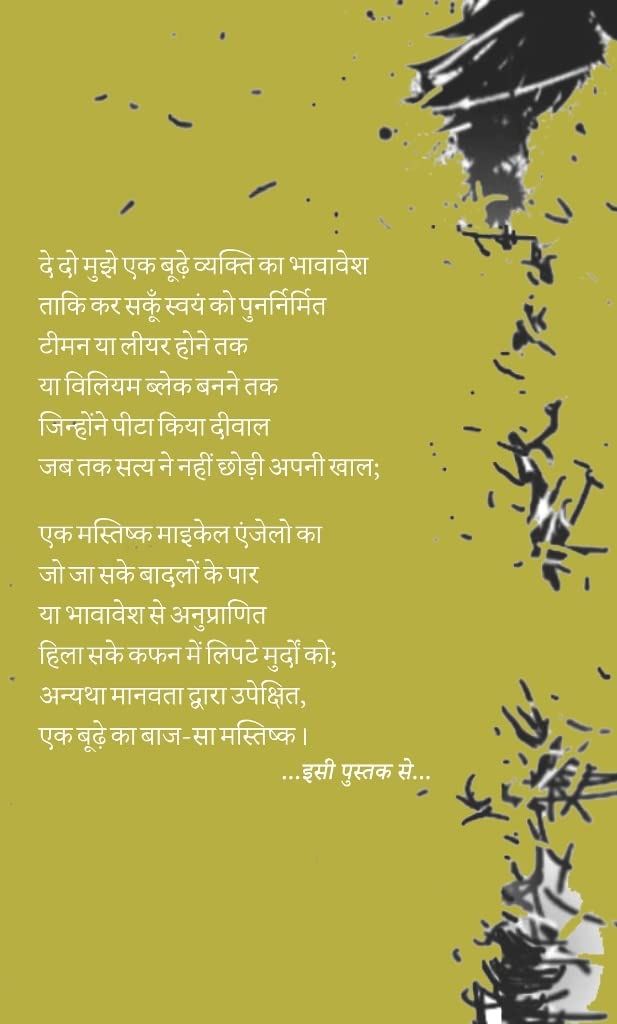 दे दो मुझे एक बूढ़े व्यक्ति का भावावेश
ताकि कर सकूँ स्वयं को पुनर्निर्मित
टीमन या लीयर होने तक
या विलियम ब्लेक बनने तक
जिन्होंने पीटा किया दीवाल
जब तक सत्य ने नहीं छोड़ी अपनी खाल;
एक मस्तिष्क माइकेल एंजेलो का
जो जा सके बादलों के पार
या भावावेश से अनुप्राणित
हिला सके कफन में लिपटे मुर्दों को;
अन्यथा मानवता द्वारा उपेक्षित,
एक बूढ़े का बाज-सा मस्तिष्क।
...इसी पुस्तक से...